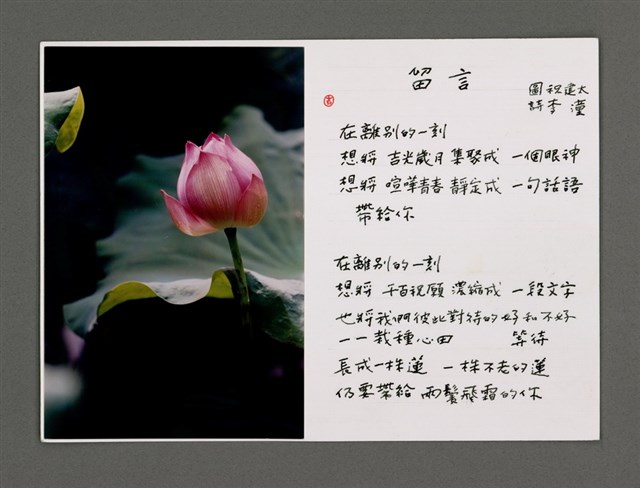 留言
圖 祝建太
詩 李潼
在離別的一刻
想將 吉光歲月 集聚成 一個眼神
想將 喧嘩青春 靜定成 一句話語
帶給你
在離別的一刻
想將 千百祝願 濃縮成 一段文字
也將我們彼此對待的好和不好
一一栽種心田 等待
長成一株蓮 一株不老的蓮
仍要帶給 兩鬢飛霜的你